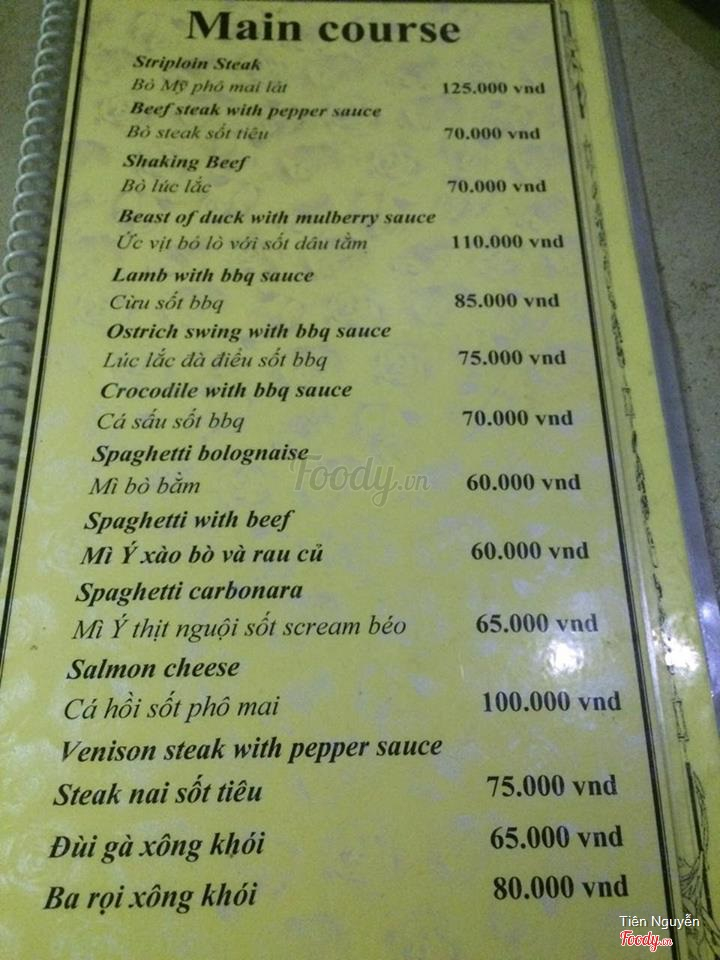 Main course
Striploin Steak
Bò Mỹ phô mai lát 125.000 vnd
Beef steak with pepper sauce
Bò steak sốt tiêu 70.000 vnd
Shaking Beef
Bò lúc lắc 70.000 vnd
Beast of duck with mulberry sauce
Ức vịt bỏ lò với sốt dâu tằm 110.000 vnd
Lamb with bbq sauce
Cừu sốt bbq 85.000 vnd
Ostrich swing with bbq sauce
Lúc lắc đà điểu sốt bbq 75.000 vnd
Crocodile with bbq sauce
Cá sấu sốt bbq 70.000 vnd
Spaghetti bolognaise
Mì bò bằm 60.000 vnd
Foody.vn
Spaghetti with beef
Mì Ý xào bò và rau củ 60.000 vnd
Spaghetti carbonara
Mì Ý thịt nguội sốt scream béo 65.000 vnd
Salmon cheese
Cá hồi sốt phô mai 100.000 vnd
Venison steak with pepper sauce
Steak nai sốt tiêu 75.000 vnd
Đùi gà xông khói 65.000 vnd
Ba rọi xông khói 80.000 vnd
Tiên Nguyễn
Foody.vn